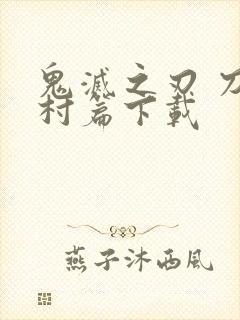 鬼滅之刃 刀
村篇下載
燕子沐西風